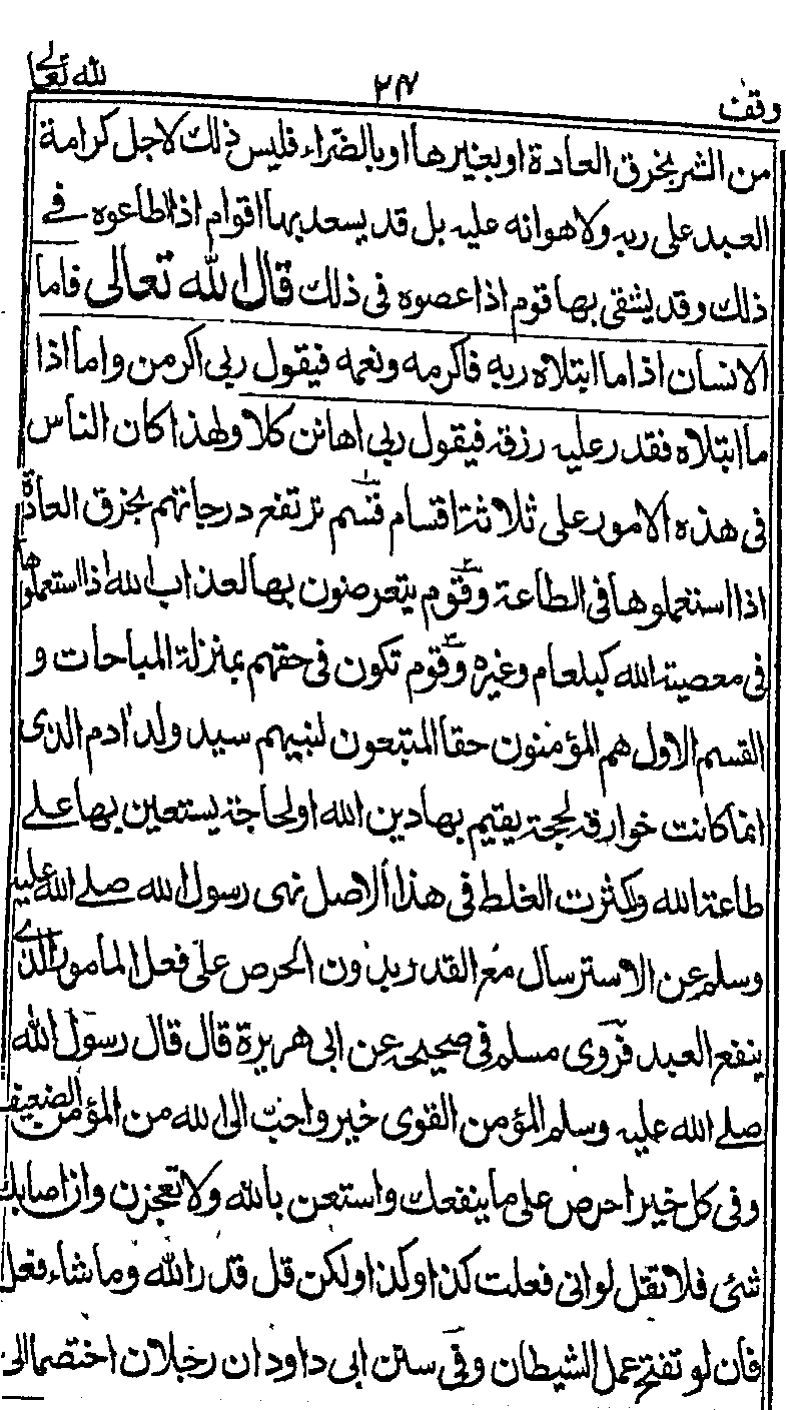 وقف ٢٤ لله تعالى
من الشر بخرق العادة او بغيرها او بالضراء فليس ذلك لاجل كرامة
العبد على ربه ولا هوانه عليه بل قد يسعد بها اقوام اذا اطاعوه في
ذلك وقد يشقى بها قوم اذا عصوه في ذلك قال الله تعالى فاما
الانسان اذا ما ابتلاه ربه فاكرمه ونعمه فيقول ربى اكرمن واما اذا
ما ابتلاه فقدر عليه رزقه فيقول ربى اهانن كلا ولهذا كان الناس
فى هذه الامور على ثلاثة اقسام قسم ترتفع درجاتهم بخرق العادة
اذا استعملوها فى الطاعة وقوم يتعرضون بها لعذاب الله اذا استعملوها
فى معصية الله كبلعام وغيره وقوم تكون فى حقهم بمنزلة المباحات و
القسم الاول هم المؤمنون حقا المتبعون لنبيهم سيد ولد ادم الذى
انما كانت خوارقه لحجة يقيم بها دين الله او لحاجة يستعين بها على
طاعة الله ولكثرت الغلط فى هذا الاصل نهى رسول الله صلے الله عليه
وسلم عن الاسترسال مع القدر بدون الحرص على فعل المامور الذے
ينفع العبد فروى مسلم فى صحيحه عن ابى هريرة قال قال رسول الله
صلے الله عليه وسلم المؤمن القوى خير واحب الى الله من المؤمن الضعيف
وفى كل خير احرص على ما ينفعك واستعن بالله ولا تعجزن وان اصابك
شئ فلا تقل لو انى فعلت كذا وكذا ولكن قل قدر الله وما شاء فعل
فان لو تفتح عمل الشيطان وفى سنن ابى داود ان رجلان اختصما الى